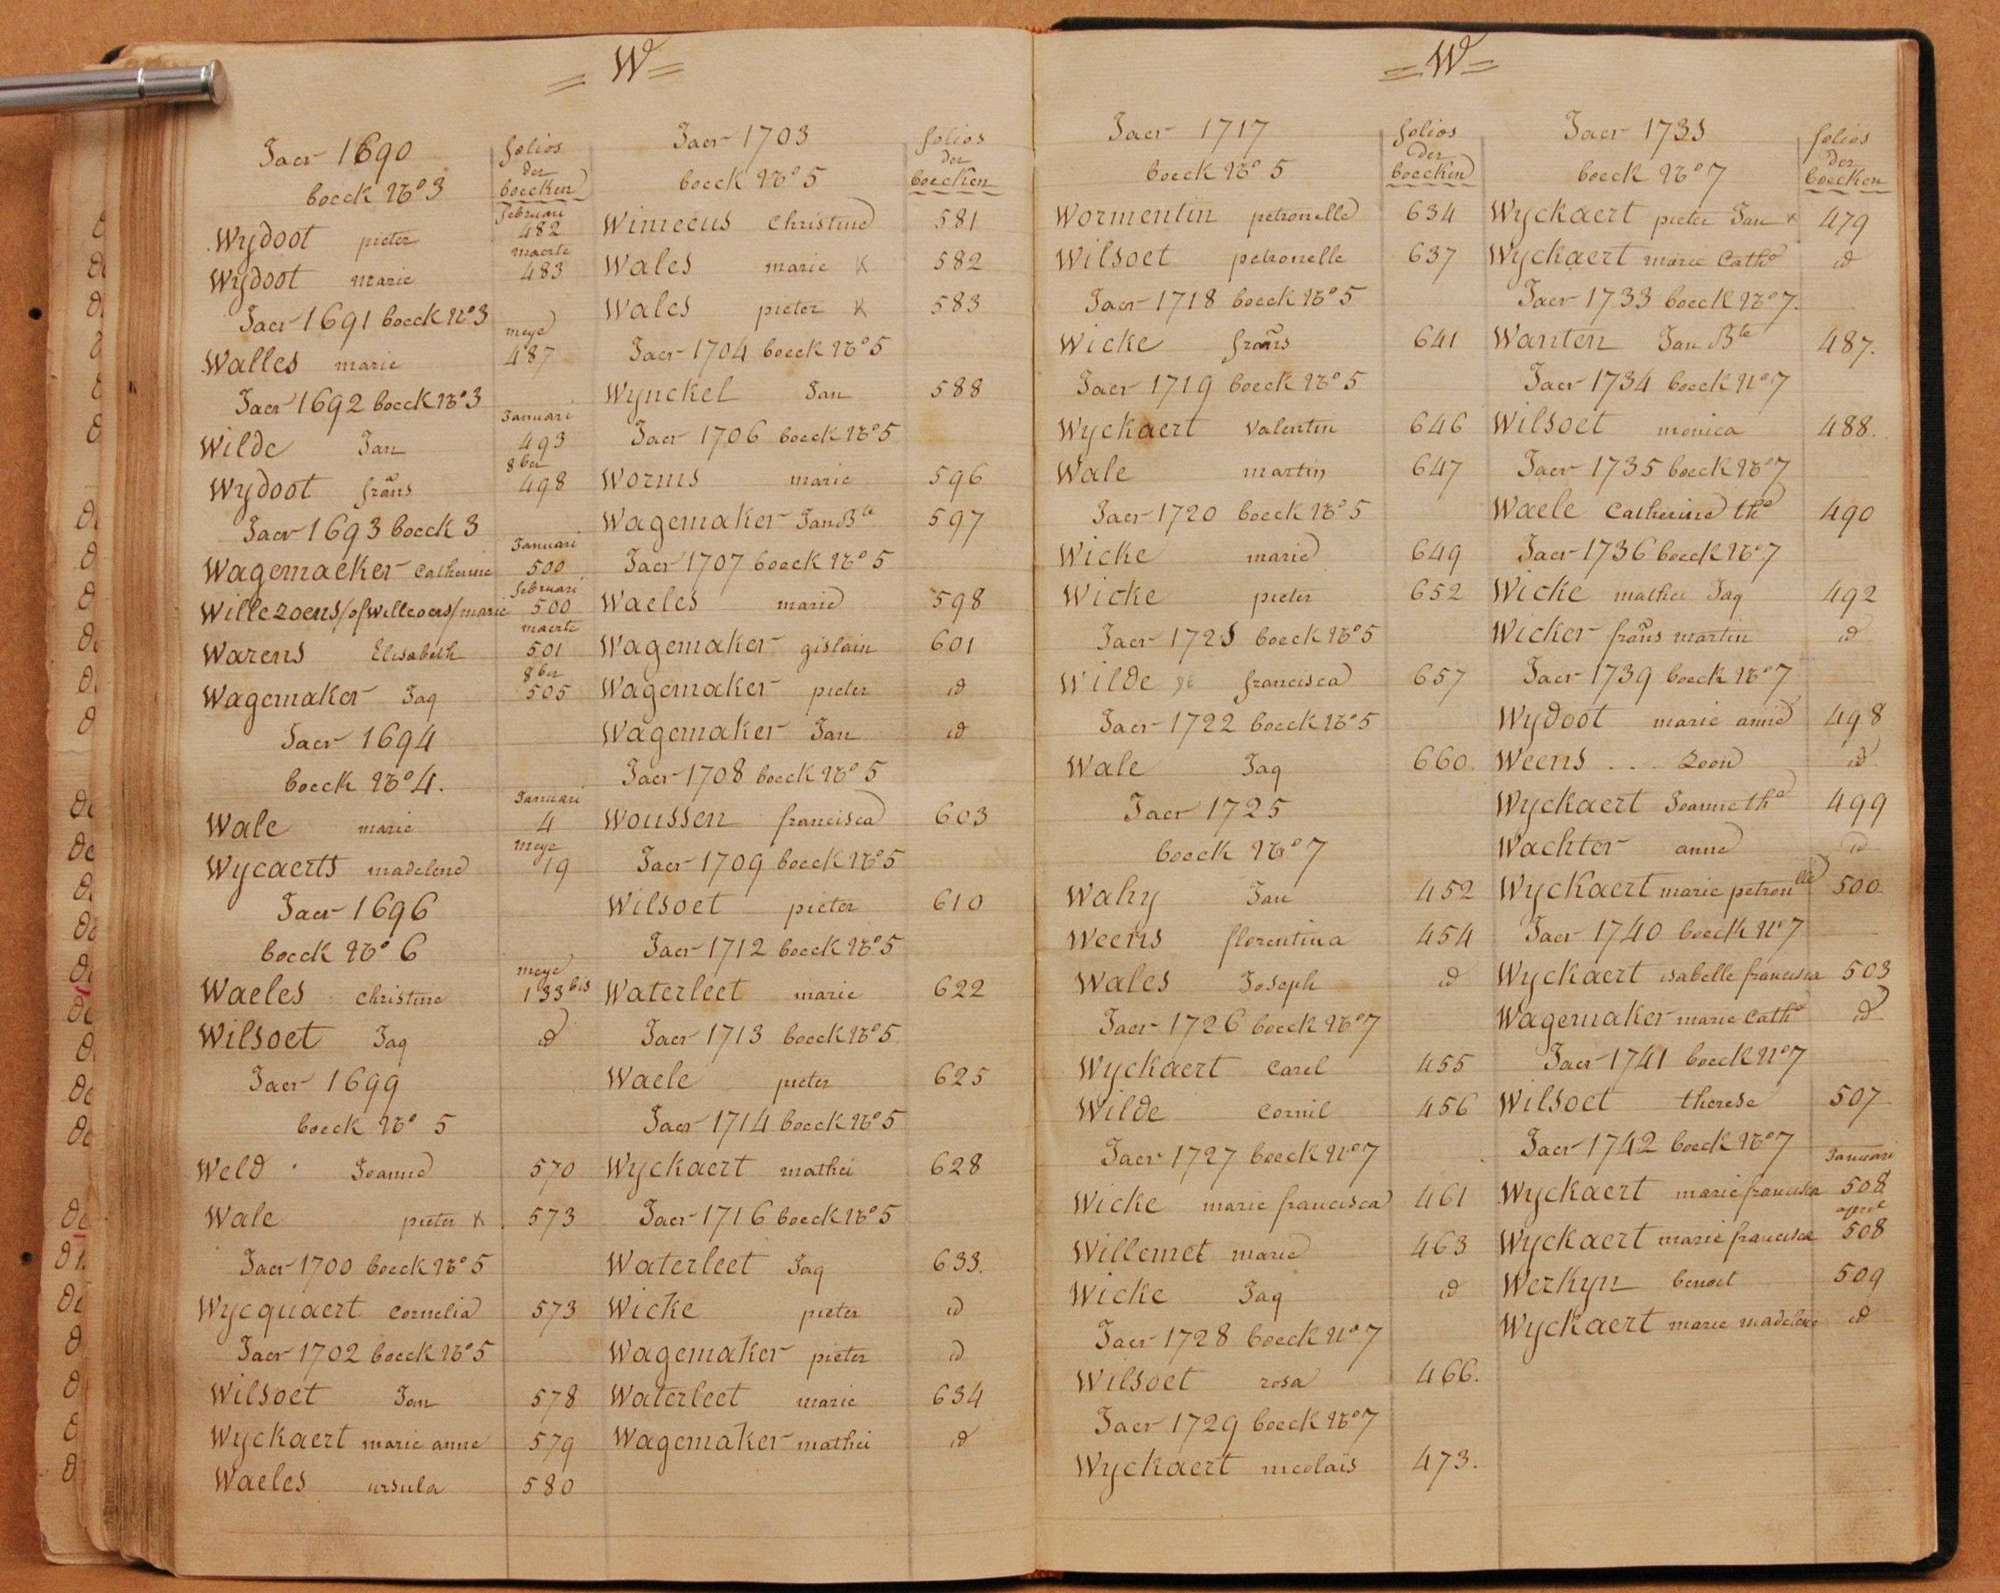 = W =
Jaer 1690
boeck No 3
folios
der
boecken
februari
Wydoot pieter 482
maerte
Wydoot marie 483
Jaer 1691 boeck No 3
meye
Walles marie 487
Jaer 1692 boeck No 3
Januari
Wilde Jan 493
8ber
Wydoot frans 498
Jaer 1693 boeck 3
Januari
Wagemaeker Catherine 500
februari
Willezoens/of Willeoers/marie 500
maerte
Warens Elisabeth 501
8ber
Wagemaker Jaq 505
Jaer 1694
boeck No 4.
Januari
Wale marie 4
meye
Wycaerts madelene 19
Jaer 1696
boeck No 6
meye
Waeles christine 133 bis
Wilsoet Jaq id
Jaer 1699
boeck No 5
Weld Joanne 570
Wale pieter x 573
Jaer 1700 boeck No 5
Wycquaert Cornelia 573
Jaer 1702 boeck No 5
Wilsoet Jan 578
Wyckaert marie anne 579
Waeles ursula 580
Jaer 1703
boeck No 5
folios
der
boecken
Winecus Christine 581
Wales marie x 582
Wales pieter x 583
Jaer 1704 boeck No 5
Wynckel Jan 588
Jaer 1706 boeck No 5
Worms marie 596
Wagemaker Jan Bte 597
Jaer 1707 boeck No 5
Waeles marie 598
Wagemaker gislain 601
Wagemaker pieter id
Wagemaker Jan id
Jaer 1708 boeck No 5
Woussen francisca 603
Jaer 1709 boeck No 5
Wilsoet pieter 610
Jaer 1712 boeck No 5
Waterleet marie 622
Jaer 1713 boeck No 5
Waele pieter 625
Jaer 1714 boeck No 5
Wyckaert mathei 628
Jaer 1716 boeck No 5
Waterleet Jaq 633.
Wicke pieter id
Wagemaker pieter id
Waterleet marie 634
Wagemaker mathei id
= W =
Jaer 1717
boeck No 5
folios
der
boecken
Wormentin petronelle 634
Wilsoet petronelle 637
Jaer 1718 boeck No 5
Wicke frans 641
Jaer 1719 boeck No 5
Wyckaert Valentin 646
Wale martin 647
Jaer 1720 boeck No 5
Wicke marie 649
Wicke pieter 652
Jaer 1721 boeck No 5
Wilde francisca 657
Jaer 1722 boeck No 5
Wale Jaq 660.
Jaer 1725
boeck No 7
Wahy Jan 452
Weens florentina 454
Wales Joseph id
Jaer 1726 boeck No 7
Wyckaert Carel 455
Wilde Cornil 456
Jaer 1727 boeck No 7
Wicke marie francisca 461
Willemet marie 463
Wicke Jaq id
Jaer 1728 boeck No 7
Wilsoet rosa 466.
Jaer 1729 boeck No 7
Wyckaert nicolais 473.
Jaer 1731
boeck No 7
folios
der
boecken
Wyckaert pieter Jan x 479
Wyckaert marie Cathe id
Jaer 1733 boeck No 7.
Wanten Jan Bte 487.
Jaer 1734 boeck No 7
Wilsoet monica 488.
Jaer 1735 boeck No 7
Waele Catherine the 490
Jaer 1736 boeck No 7
Wicke mathei Jaq 492
Wicker frans martin id
Jaer 1739 boeck No 7
Wydoot marie anne 498
Weens ... Zoon id
Wyckaert Joanne the 499
Wachter anne id
Wyckaert marie petronlle 500
Jaer 1740 boeck No 7
Wyckaert isabelle francisca 503
Wagemaker marie Cathe id
Jaer 1741 boeck No 7
Wilsoet therese 507
Jaer 1742 boeck No 7
Januari
Wyckaert marie francisca 508
april
Wyckaert marie francisca 508
Werkyn benoit 509
Wyckaert marie madelene id